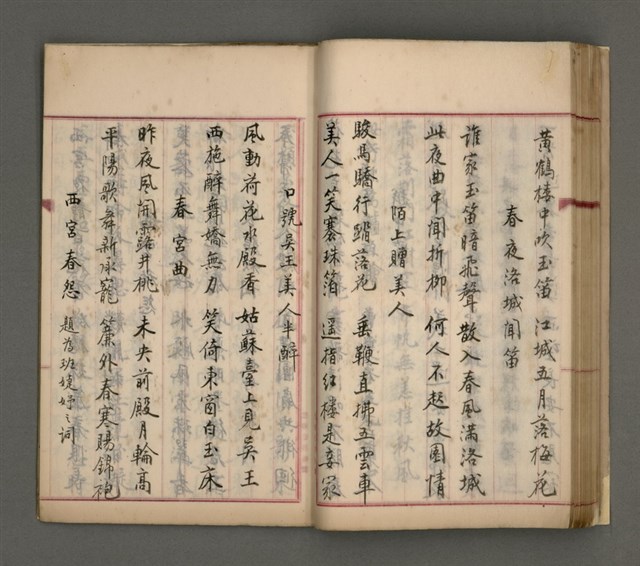 黄鶴樓中吹玉笛 江城五月落梅花
春夜洛城聞笛
誰家玉笛暗飛聲 散入春風滿洛城
此夜曲中聞折柳 何人不起故園情
陌上贈美人
駿馬驕行踏落花 垂鞭直拂五雲車
美人一笑褰珠箔 遥指紅樓是妾家
口號吴王美人半醉
風動荷花水殿香 姑蘇臺上見吴王
西施醉舞嬌無力 笑倚東窗白玉床
春宮曲
昨夜風開露井桃 未央前殿月輪高
平陽歌舞新承寵 簾外春寒賜錦袍
西宮春怨 題為班婕妤之詞